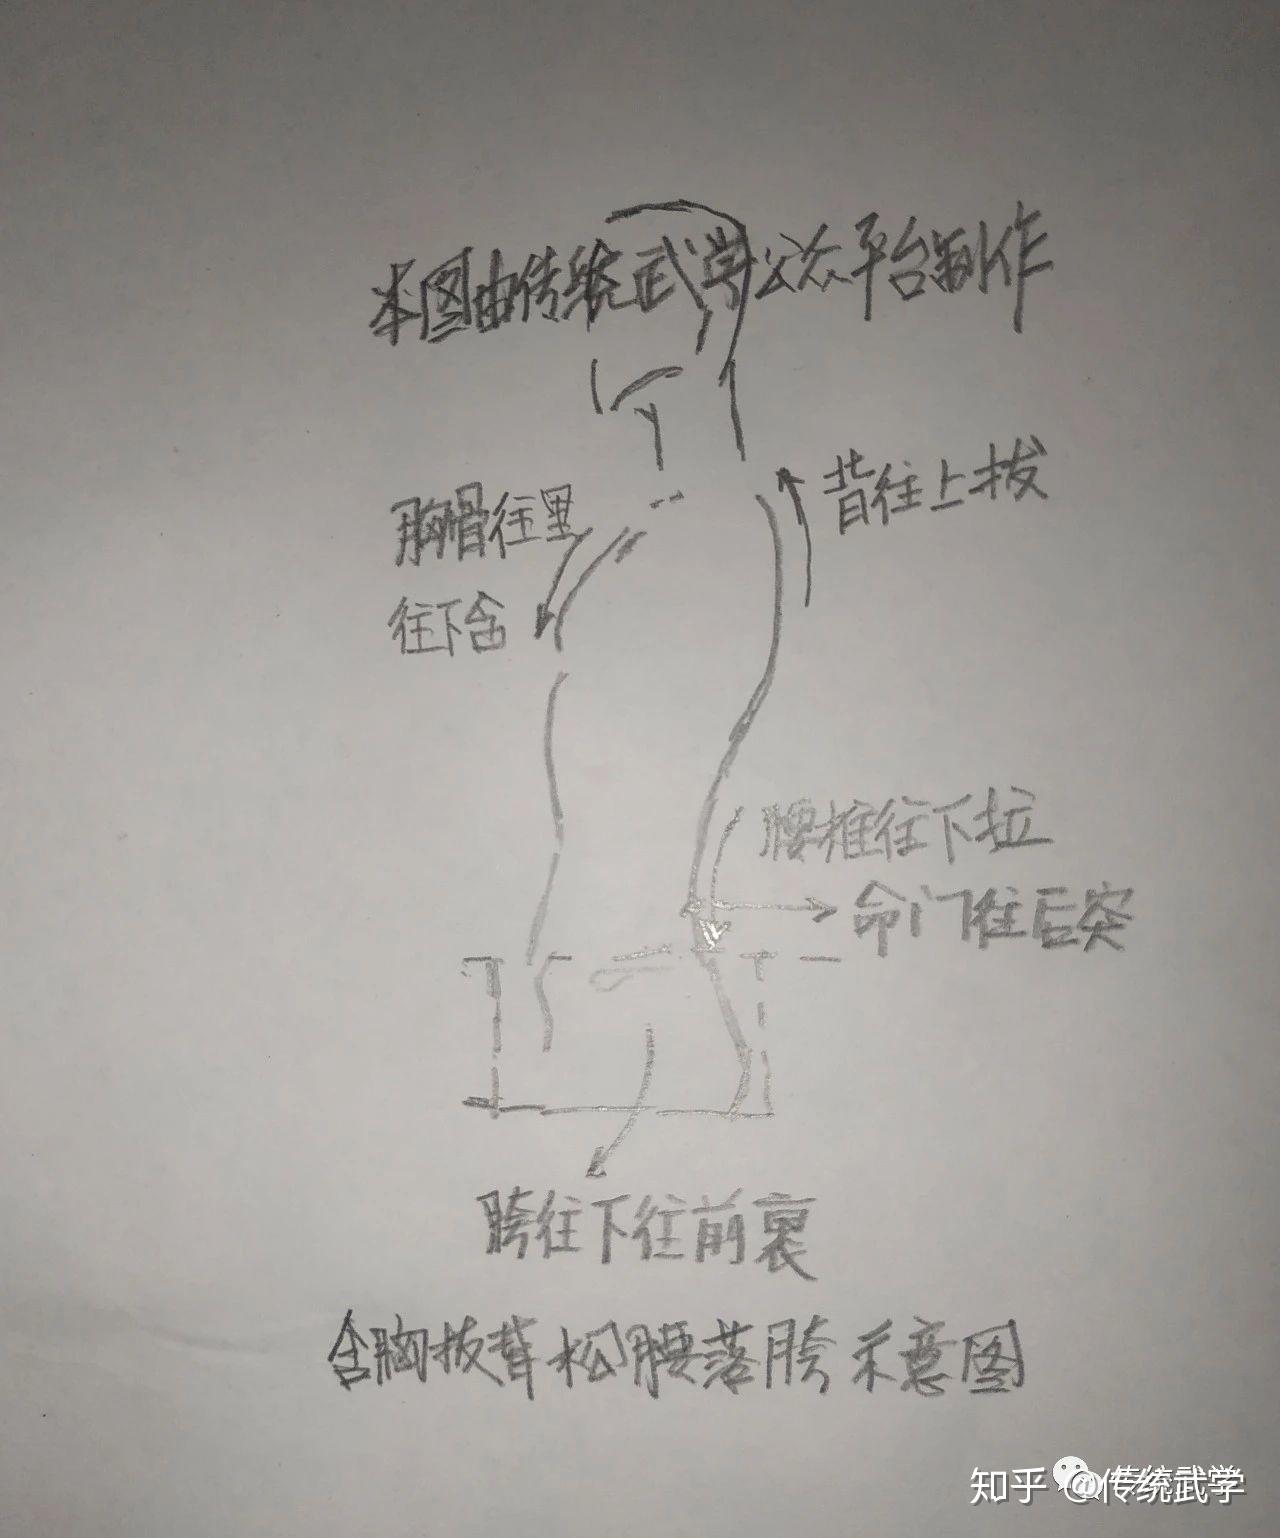 本图由传统武学公众平台制作
背往上拔
胸骨往里
往下含
腰椎往下拉
命门往后突
胯往下往前裹
含胸拔背松腰落胯示意图
知乎 @传统武学
传统武学